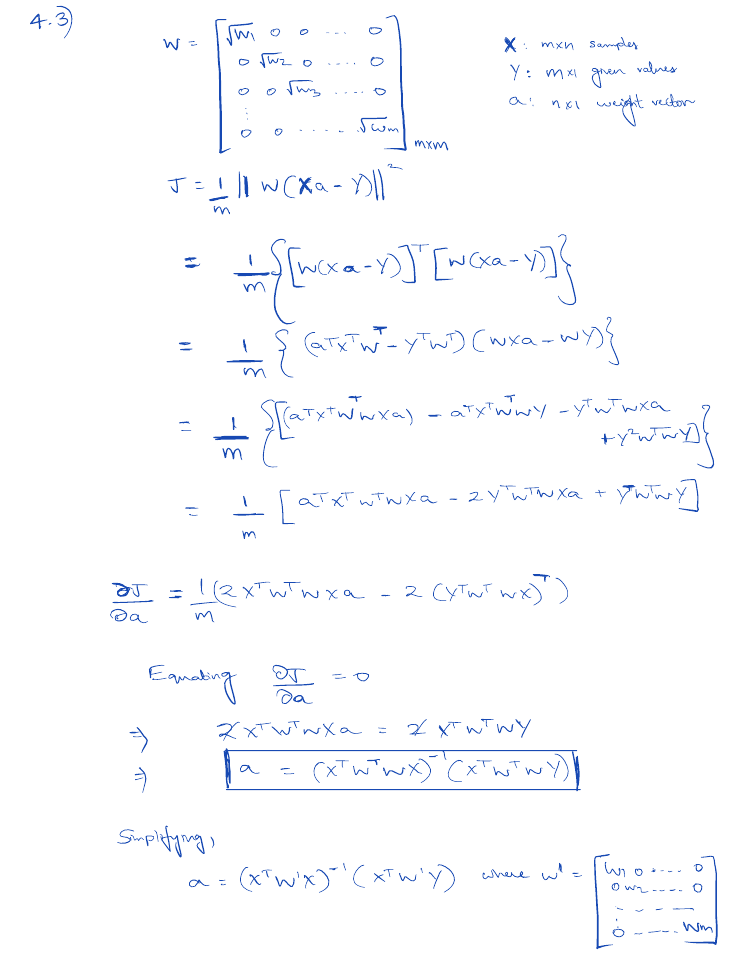 4.3)
W = [ √w1 0 0 ... 0
0 √w2 0 .... 0
0 0 √w3 ..... 0
⋮
0 0 ...... √wm ] mxm
X : mxn samples
Y : mx1 given values
a : nx1 weight vector
J = 1/m || W(Xa - Y)||²
= 1/m {[W(Xa-Y)]ᵀ [W(Xa-Y)]}
= 1/m { (aᵀXᵀWᵀ - YᵀWᵀ) (WXa - WY)}
= 1/m {[(aᵀXᵀWᵀWXa) - aᵀXᵀWᵀWY - YᵀWᵀWXa
+ Y²WᵀWY]}
= 1/m [ aᵀXᵀWᵀWXa - 2YᵀWᵀWXa + YᵀWᵀWY]
∂J/∂a = 1/m (2XᵀWᵀWXa - 2 (YᵀWᵀWX)ᵀ)
Equating ∂J/∂a = 0
⇒ 2XᵀWᵀWXa = 2 XᵀWᵀWY
⇒ a = (XᵀWᵀWX)⁻¹ (XᵀWᵀWY)
Simplifying,
a = (XᵀW'X)⁻¹ (XᵀW'Y) where W' = [ W1 0 .... 0
0 W2 .... 0
- - - -
⋮
0 ----. Wm ]